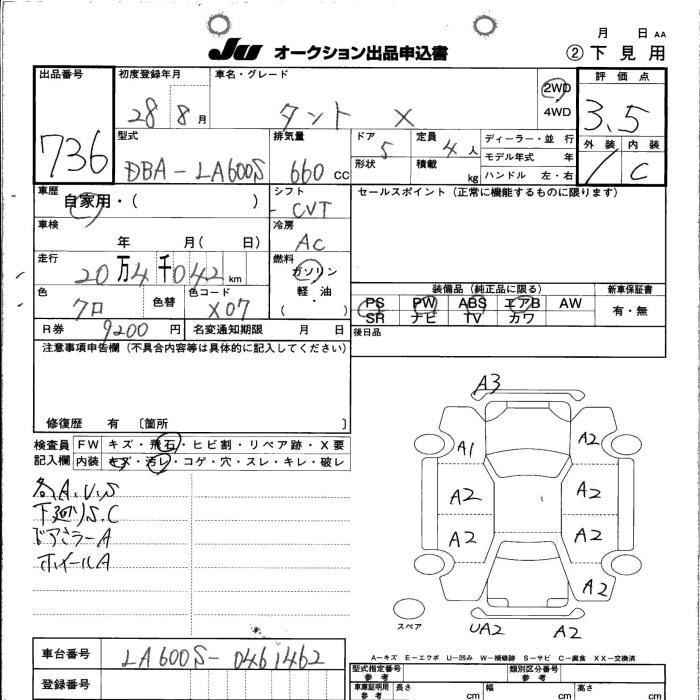 月 日 AA
JU オークション出品申込書 ② 下見用
出品番号 初度登録年月 車名・グレード 2WD 4WD 評価点
736 28 8月 タント X 3.5
型式 排気量 ドア 5 定員 4人 ディーラー・並行 外装 内装
DBA-LA600S 660cc 形状 積載 kg モデル年式 年 / C
ハンドル 左・右
車歴 自家用・( ) シフト CVT セールスポイント(正常に機能するものに限ります)
車検 年 月( 日) 冷房 AC
走行 20万4千042km 燃料 ガソリン・軽油 ( )
色 クロ 色替 色コード X07
装備品(純正品に限る) 新車保証書
PS PW ABS エアB AW 有・無
SR ナビ TV カワ
R券 9200円 名変通知期限 月 日 後日品
注意事項申告欄(不具合内容等は具体的に記入してください)
修復歴 有 [箇所 ]
検査員記入欄 FW キズ・飛石・ヒビ割・リペア跡・X要
内装 キズ・汚レ・コゲ・穴・スレ・キレ・破レ
各A.U.S
下廻りS.C
ドアミラーA
ホイールA
A3
A1 A2
A2 A2
A2 A2
A2
スペア UA2 A2
A-キズ E-エクボ U-凹み W-補修跡 S-サビ C-腐食 XX-交換済
車台番号 LA600S-0461462
登録番号
型式指定番号 参考 類別区分番号 参考
車庫証明用 参考 長さ cm 幅 cm 高さ cm